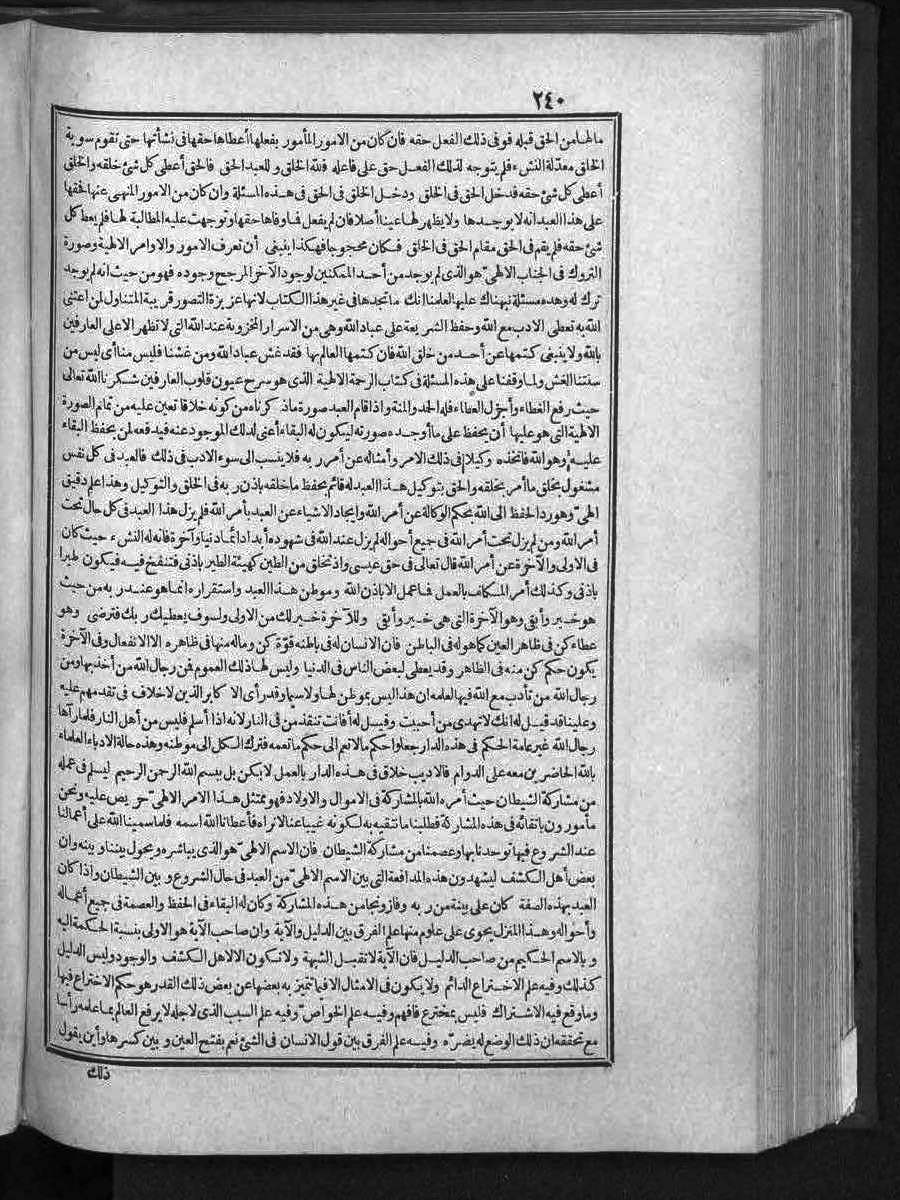 ٢٤٠
مالها من الحق قبله فوفى ذلك الفعل حقه فان كان من الامور المأمور بفعلها أعطاها حقها فى نشأتها حتى تقوم سوية
الخلق معدّلة النشء فلم يتوجه لذلك الفعل حق على فاعله فلله الخلق وللعبد الحق فالحق أعطى كل شئ خلقه والخلق
أعطى كل شئ حقه فدخل الحق فى الخلق ودخل الخلق فى الحق فى هذه المسئلة وان كان من الامور المنهى عنها فحقها
على هذا العبد انه لا يوجدها ولا يظهر لها عينا أصلا فان لم يفعل فما وفاها حقها وتوجهت عليه المطالبة لها فلم يعط كل
شئ حقه فلم يقم فى الحق مقام الحق فى الخلق فكان محجوجا فهكذا ينبغى أن تعرف الامور والاوامر الالهية وصورة
التروك فى الجناب الالهىّ هو الذى لم يوجد من أحد الممكنين لوجود الآخر المرجح وجوده فهو من حيث انه لم يوجد
ترك له وهذه مسئلة نبهناك عليها لعلمنا انك ما تجدها فى غير هذا الكتاب لانها عزيزة التصور قريبة المتناول لمن اعتنى
الله به تعطى الادب مع الله وحفظ الشريعة على عباد الله وهى من الاسرار المخزونة عند الله التى لا تظهر الا على العارفين
بالله ولا ينبغى كتمها عن أحد من خلق الله فان كتمها العالم بها فقد غش عباد الله ومن غشنا فليس منا أى ليس من
سنتنا الغش ولما وقفنا على هذه المسئلة فى كتاب الرحمة الالهية الذى هو سرح عيون قلوب العارفين شكرنا الله تعالى
حيث رفع الغطاء وأجزل العطاء فله الحمد والمنة واذا قام العبد صورة ما ذكرناه من كونه خلاقا تعين عليه من تمام الصورة
الالهية التى هو عليها أن يحفظ على ما أوجده صورته ليكون له البقاء أعنى لذلك الموجود عنه فيدفعه لمن يحفظ البقاء
عليه وهو الله فاتخذه وكيلا فى ذلك الامر وأمثاله عن أمر ربه فلا ينسب الى سوء الادب فى ذلك فالعبد فى كل نفس
مشغول بخلق ما أمر بخلقه والحق بتوكيل هذا العبد له قائم بحفظ ما خلقه باذن ربه فى الخلق والتوكيل وهذا علم دقيق
الهىّ وهو رد الحفظ الى الله بحكم الوكالة عن أمر الله وايجاد الاشياء عن العبد بأمر الله فلم يزل هذا العبد فى كل حال تحت
أمر الله ومن لم يزل تحت أمر الله فى جميع أحواله لم يزل عند الله فى شهوده أبدا دائما دنيا وآخرة فانه له النشء حيث كان
فى الاولى والآخرة عن أمر الله قال تعالى فى حق عيسى واذ تخلق من الطين كهيئة الطير باذنى فتنفخ فيه فيكون طيرا
باذنى وكذلك أمر المكلف بالعمل فما عمل الا باذن الله وموطن هذا العبد واستقراره انما هو عند ربه من حيث
هو خير وأبقى وهو الآخرة التى هى خير وأبقى وللآخرة خير لك من الاولى ولسوف يعطيك ربك فترضى وهو
عطاء كن فى ظاهر العين كما هو له فى الباطن فان الانسان له فى باطنه قوّة كن وماله منها فى ظاهره الا الانفعال وفى الآخرة
يكون حكم كن منه فى الظاهر وقد يعطى لبعض الناس فى الدنيا وليس لها ذلك العموم فمن رجال الله من أخذ بها ومن
رجال الله من تأدب مع الله فيها لعلمه ان هذا ليس بموطن لها ولا سيما وقد رأى الا كابر الذين لا خلاف فى تقدمهم عليه
وعلينا قد قيل له انك لا تهدى من أحببت وقيل له أفأنت تنقذ من فى النار لانه اذا أسلم فليس من أهل النار فلما رآها
رجال الله غير عامة الحكم فى هذه الدار جعلوا حكم ما لا تعم الى حكم ما تعمه فترك الكل الى موطنه وهذه حالة الادباء العلماء
بالله الحاضرين معه على الدوام فالاديب خلاق فى هذه الدار بالعمل لا بكن بل ببسم الله الرحمن الرحيم ليسلم فى عمله
من مشاركة الشيطان حيث أمره الله بالمشاركة فى الاموال والاولاد فهو ممتثل هذا الامر الالهىّ حريص عليه ونحن
مأمورون باتقائه فى هذه المشاركة فطلبنا ما نتقيه به لكونه غيبا عنا لا نراه فأعطانا الله اسمه فلما سمينا الله على أعمالنا
عند الشروع فيها توحدنا بها وعصمنا من مشاركة الشيطان فان الاسم الالهىّ هو الذى يباشره ويحول بيننا وبينه وان
بعض أهل الكشف ليشهدون هذه المدافعة التى بين الاسم الالهىّ من العبد فى حال الشروع وبين الشيطان واذا كان
العبد بهذه الصفة كان على بينة من ربه وفاز ونجا من هذه المشاركة وكان له البقاء فى الحفظ والعصمة فى جميع أعماله
وأحواله وهذا المنزل يحوى على علوم منها علم الفرق بين الدليل والآية وان صاحب الآية هو الاولى بنسبة الحكمة اليه
وبالاسم الحكيم من صاحب الدليل فان الآية لا تقبل الشبهة ولا تكون الا لاهل الكشف والوجود وليس الدليل
كذلك وفيه علم الاختراع الدائم ولا يكون فى الامثال الا فيما تتميز به بعضها عن بعض ذلك القدر هو حكم الاختراع فيها
وما وقع فيه الاشتراك فليس بمخترع فافهم وفيه علم الخواصّ وفيه علم السبب الذى لاجله لا يرفع العالم بما علمه رأسا
مع تحققه ان ذلك الوضع له يضرّه وفيه علم الفرق بين قول الانسان فى الشئ نعم بفتح العين وبين كسرها وأين يقول
ذلك